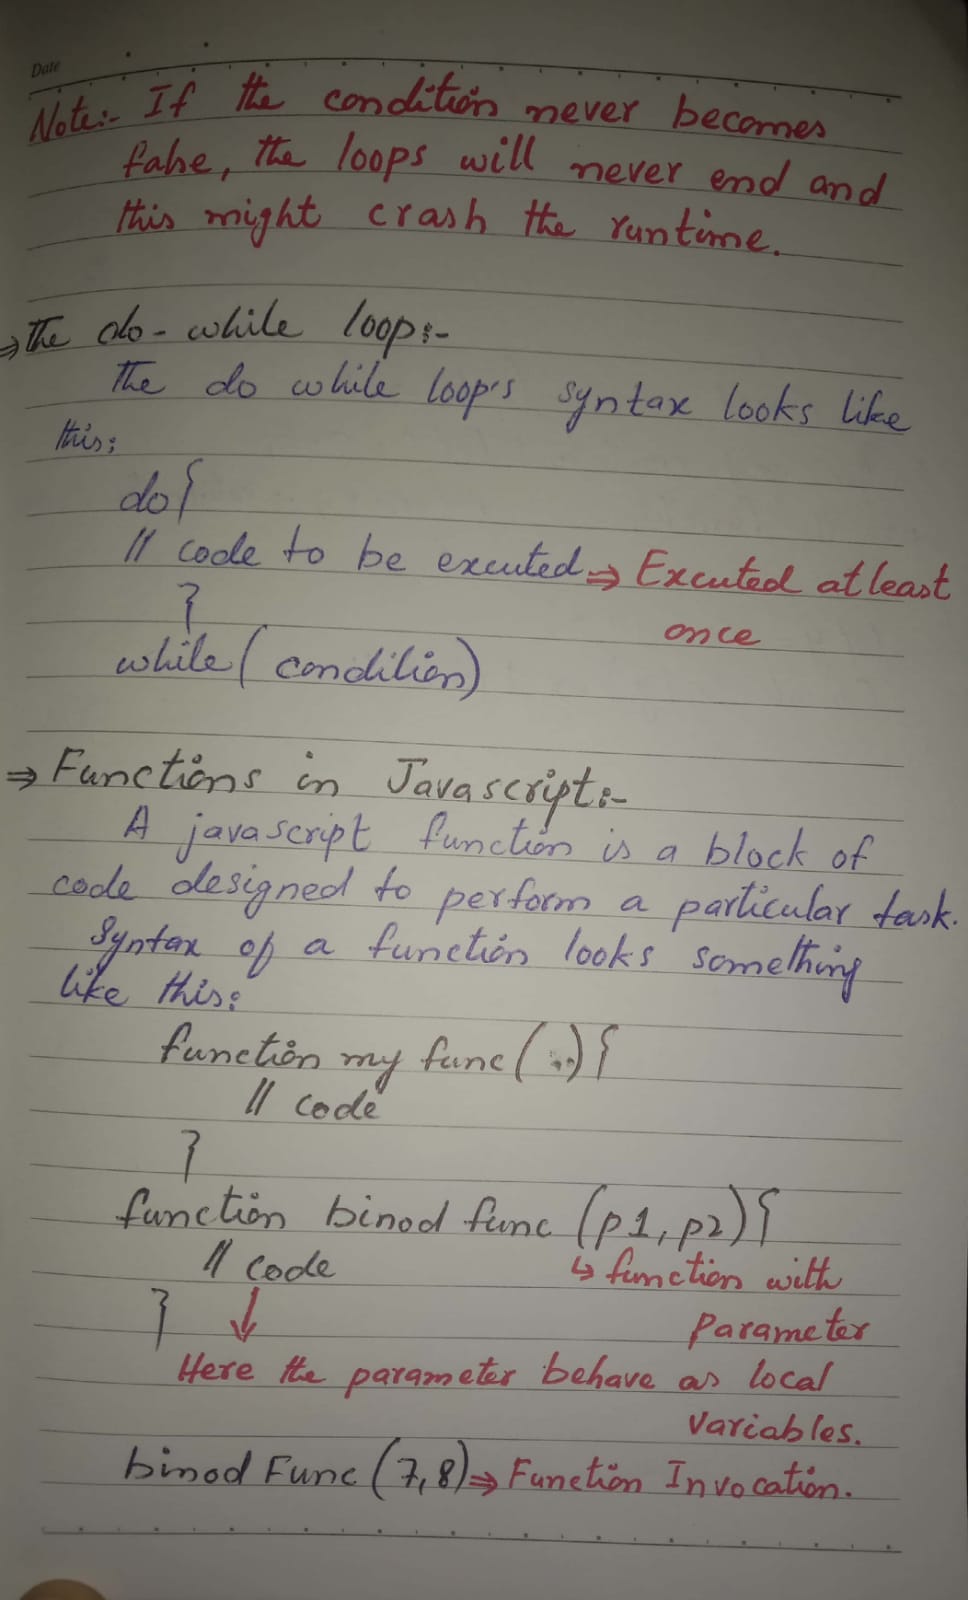 Date
Note:- If the condition never becomes
false, the loops will never end and
this might crash the runtime.
⇒ The do-while loop:-
The do while loop's syntax looks like
this:
do{
// code to be executed ⇒ Excuted atleast
once
}
while (condition)
⇒ Functions in Javascript:-
A javascript function is a block of
code designed to perform a particular task.
Syntax of a function looks something
like this:
function my func (...) {
// code
}
function binod func (p1, p2) {
// code ↳ function with
} ↓ parameter
Here the parameter behave as local
variables.
binod Func (7,8) ⇒ Function Invocation.